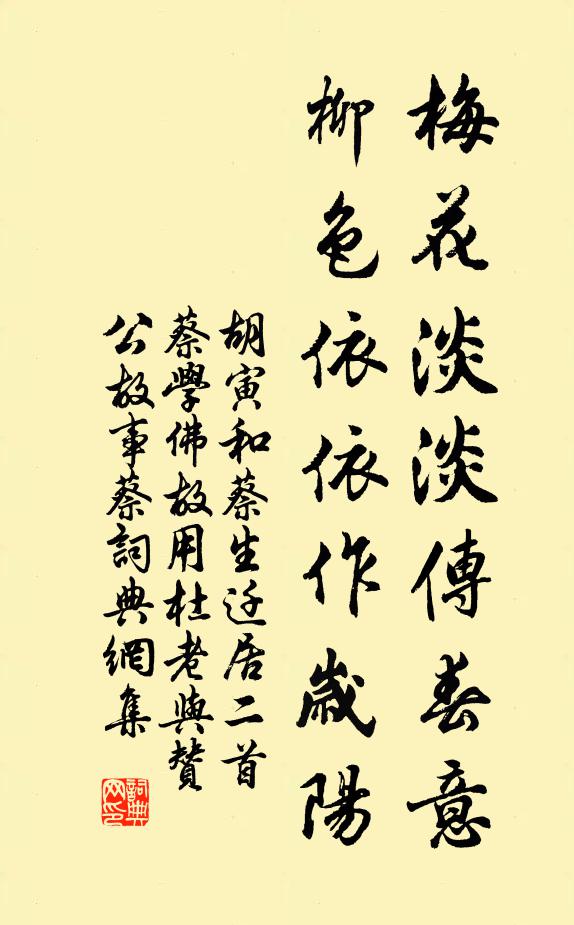 梅花淡淡傳春意
柳色依依作歲陽
胡寅和蔡生迁居二首
蔡學佛故用杜老與贊
公故事蔡詞典網集
詞典
网印